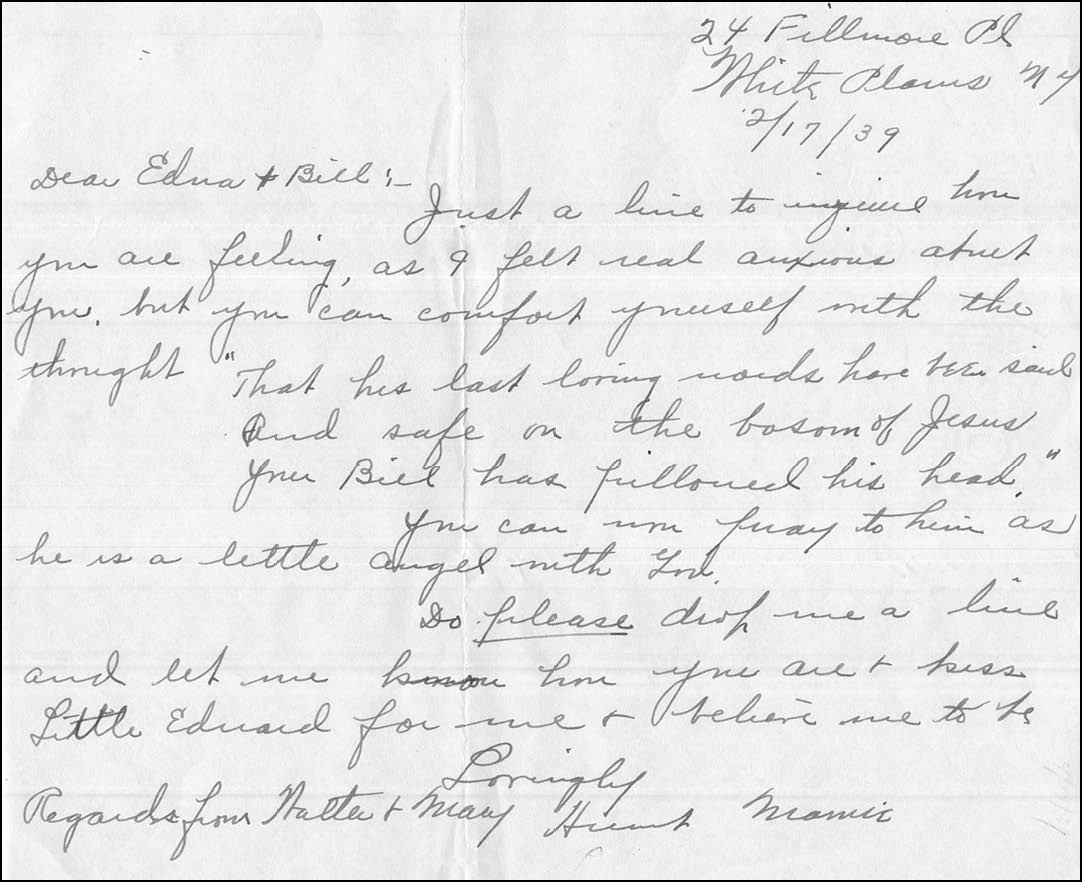 24 Fillmore Pl
White Plains N Y
2/17/39
Dear Edna & Bill :-
Just a line to inquire how
you are feeling, as I felt real anxious about
you, but you can comfort yourself with the
thought "That his last loving words have been said
And safe on the bosom of Jesus
Your Bill has pillowed his head."
You can now pray to him as
he is a little angel with God.
Do please drop me a line
and let me know how you are & kiss
Little Edward for me & believe me to be
Lovingly
Regards from Walter & Mary Hunt Mamie